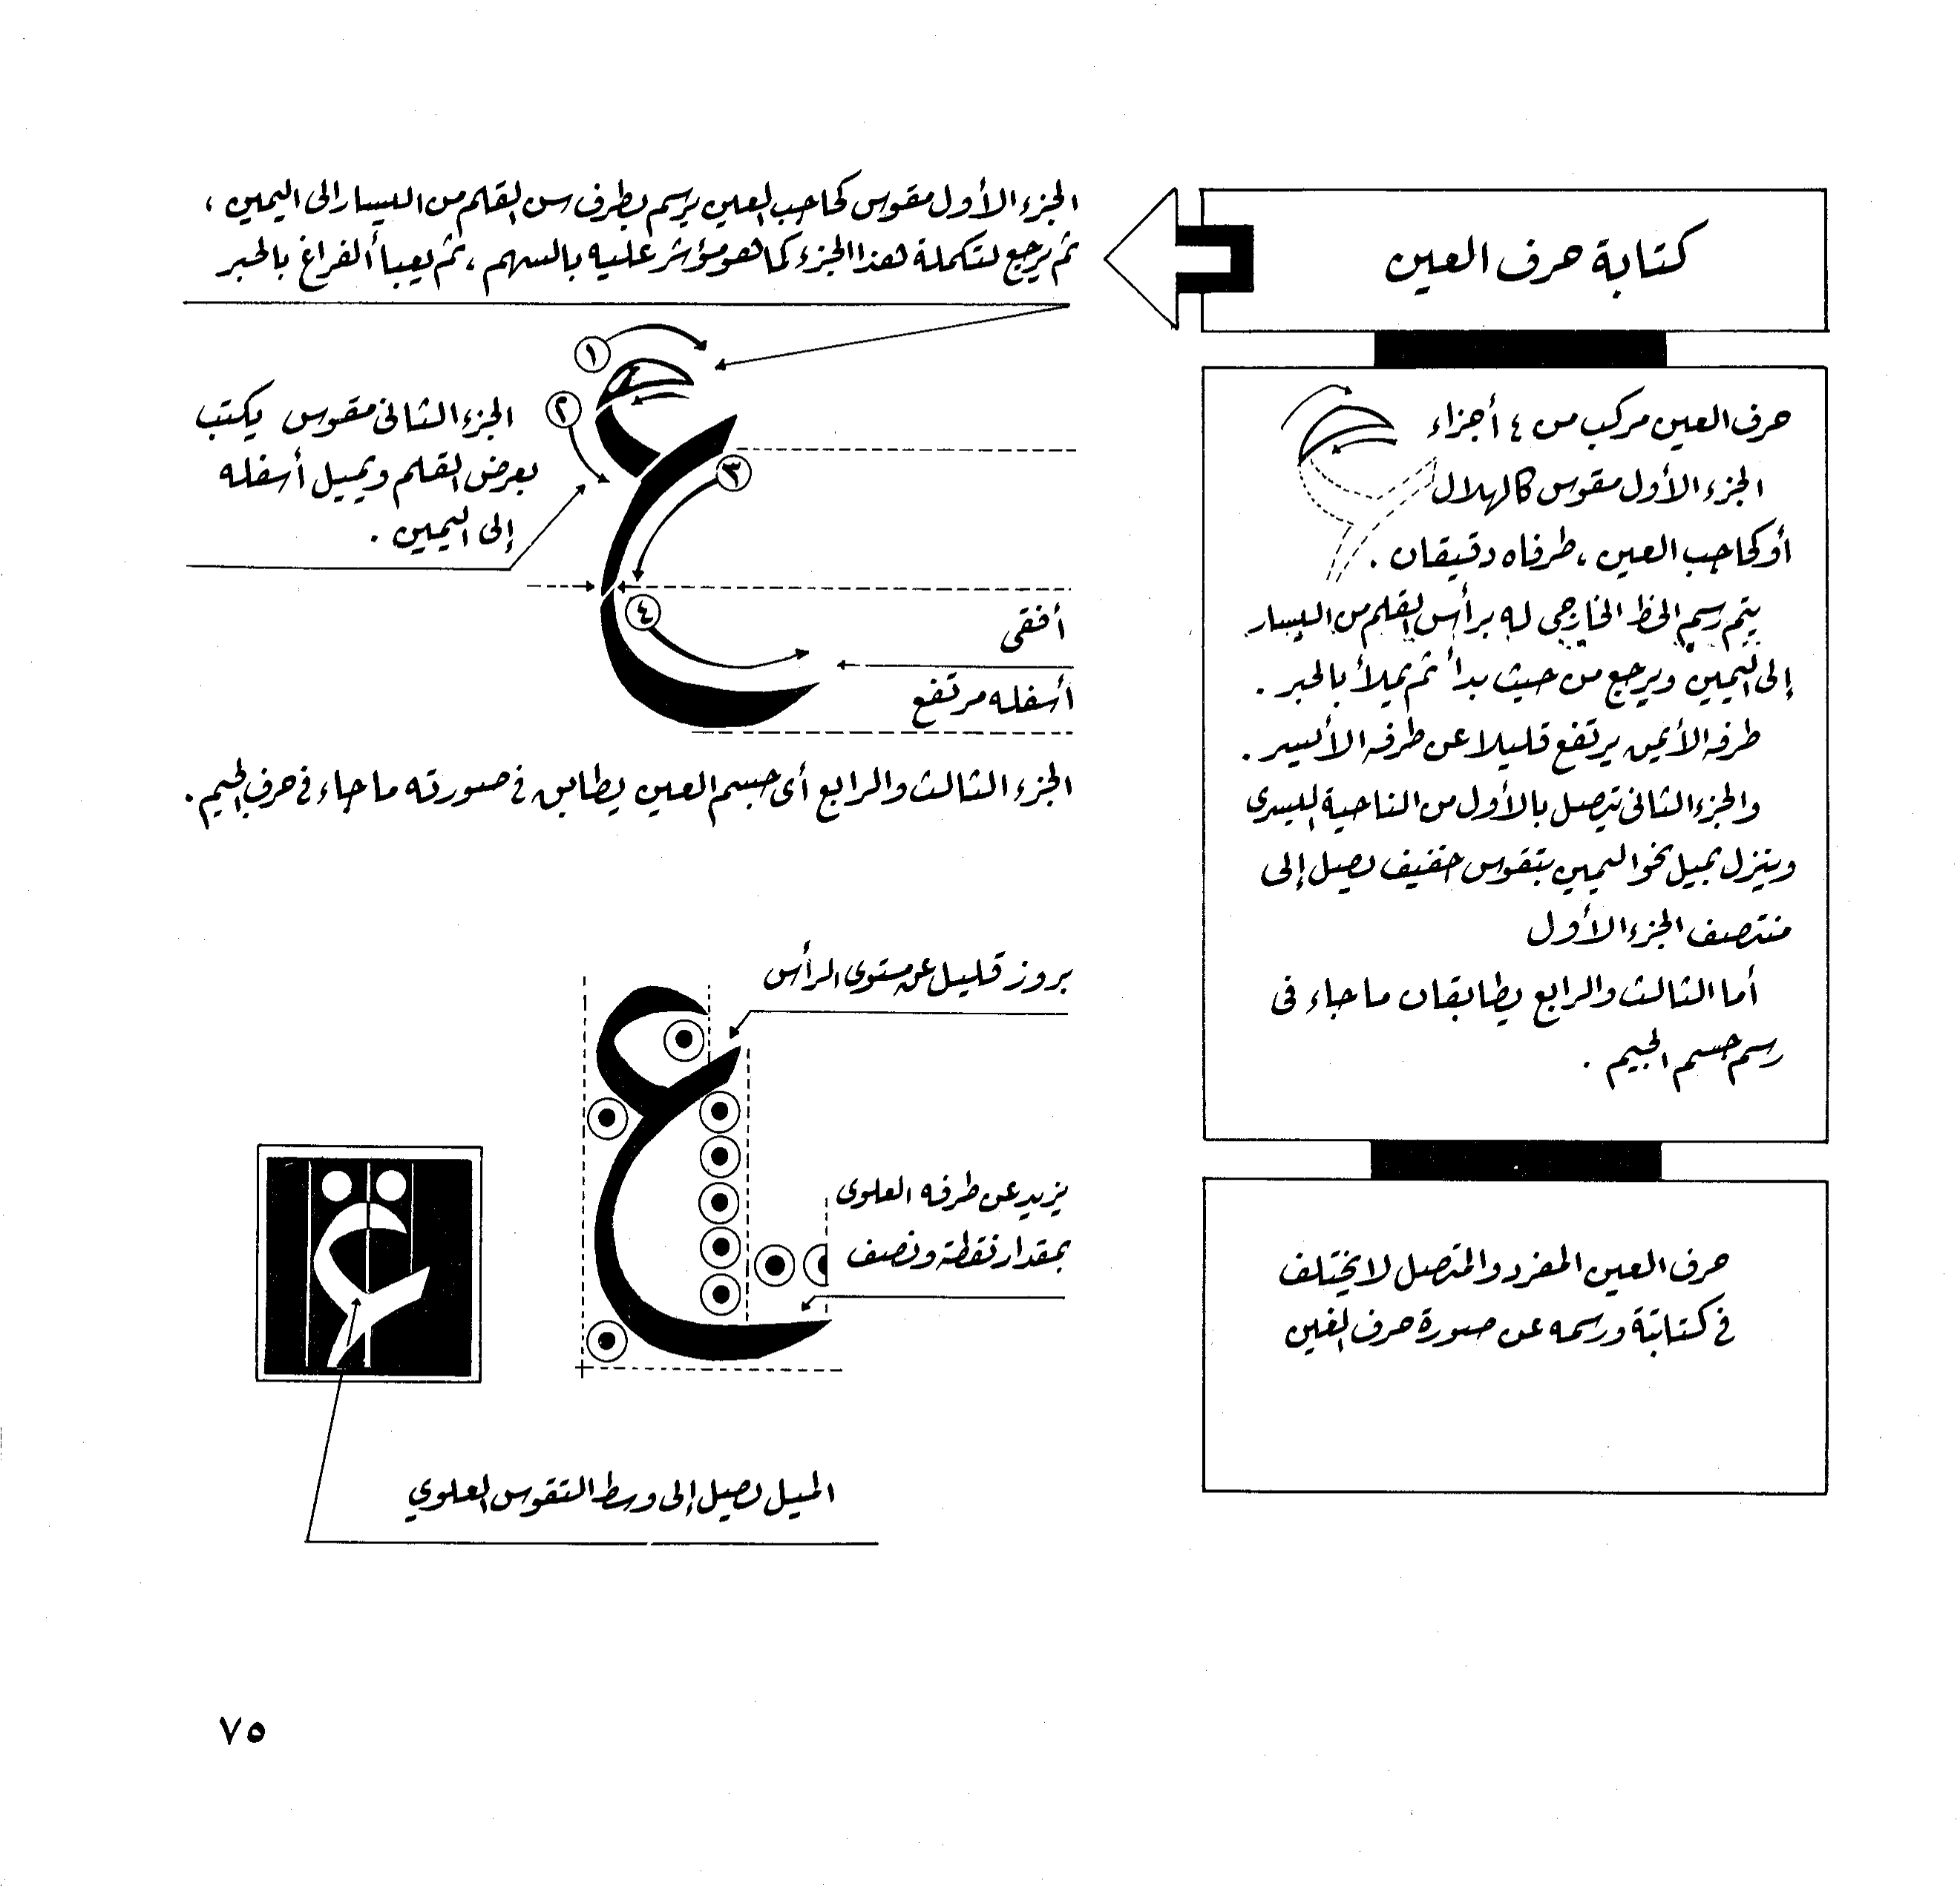 كتابة حرف العين
حرف العين مركب من ٤ أجزاء
الجزء الأول مقوس كالهلال
أو كحاجب العين ، طرفاه دقيقان .
يتم رسم الخط الخارجي له برأس القلم من اليسار
إلى اليمين ويرجع من حيث بدأ ثم يملأ بالحبر .
طرفه الأيمن يرتفع قليلا عن طرفه الأيسر .
والجزء الثانى يتصل بالأول من الناحية اليسرى
وينزل بميل نحو اليمين بتقوس خفيف يصل إلى
منتصف الجزء الأول
أما الثالث والرابع يطابقان ما جاء فى
رسم جسم الجيم .
حرف العين المفرد والمتصل لا يختلف
فى كتابتة ورسمه عن صورة حرف الغين
الجزء الأول مقوس كحاجب العين يرسم بطرف سن القلم من اليسار إلى اليمين ،
ثم يرجع لتكملة هذا الجزء كما هو مؤشر عليه بالسهم ، ثم يعبأ الفراغ بالحبر
١
٢
الجزء الثانى مقوس يكتب
بعرض القلم ويميل أسفله
إلى اليمين .
٣
٤
أفقى
أسفله مرتفع
الجزء الثالث والرابع أى جسم العين يطابق فى صورته ما جاء فى حرف الجيم .
بروز قليل عن مستوى الرأس
يزيد عن طرفه العلوى
بمقدار نقطة ونصف
الميل يصل إلى وسط التقوس العلوي
٧٥